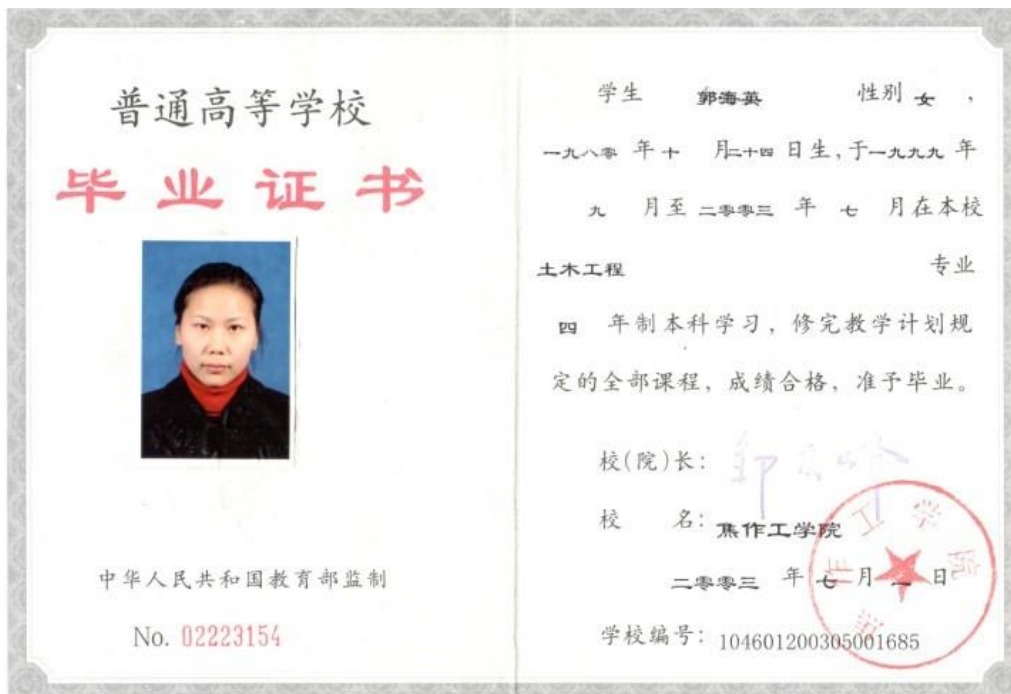 普通高等学校
毕业证书
中华人民共和国教育部监制
No. 02223154
学生 郭海英 性别 女,
一九八零 年 十 月二十四日生,于一九九九 年
九 月至 二零零三 年 七 月在本校
土木工程 专业
四 年制本科学习,修完教学计划规
定的全部课程,成绩合格,准予毕业。
校(院)长:
校 名: 焦作工学院
二零零三 年 七 月 日
学校编号: 104601200305001685
焦作工学院